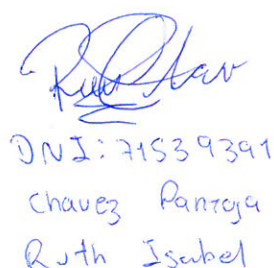 DNI: 71539391
Chavez Pantoja
Ruth Isabel